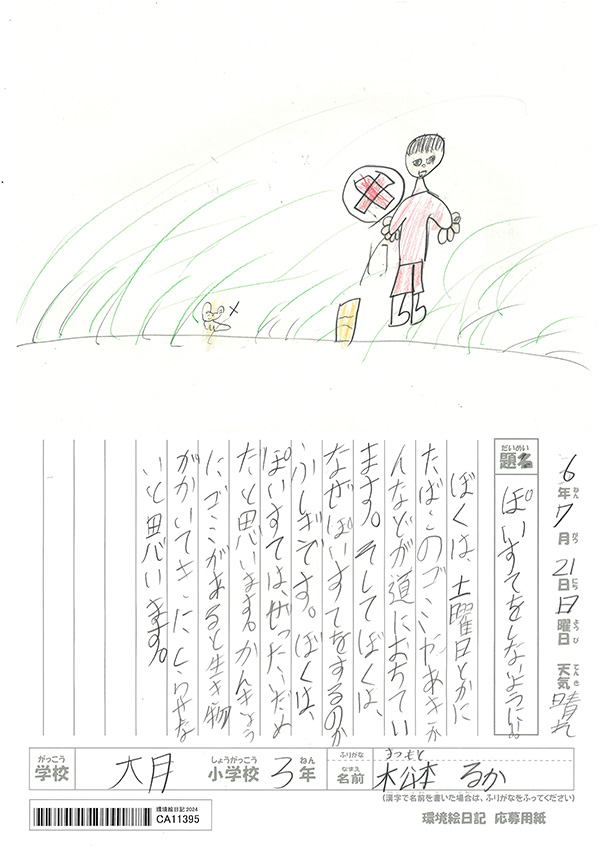 6年7月21日日曜日 天気 晴れ
ねん がつ にち ようび てんき
だいめい
題名
ぽいすてをしないように。
ぼくは、土曜日とかに
たばこのゴミやあきか
んなどが道におちてい
ます。そしてぼくは、
なぜぽいすてをするのか
ふしぎです。ぼくは、
ぽいすては、ぜったいだめ
だと思います。かんきょう
にゴミがあると生き物
がかいてきに、くらせな
いと思います。
がっこう
学校
大月
しょうがっこう
小学校
3
ねん
年
ふりがな
まつもと
なまえ
名前
松本 るか
(漢字で名前を書いた場合は、ふりがなをふってください)
環境絵日記2024
CA11395
環境絵日記 応募用紙